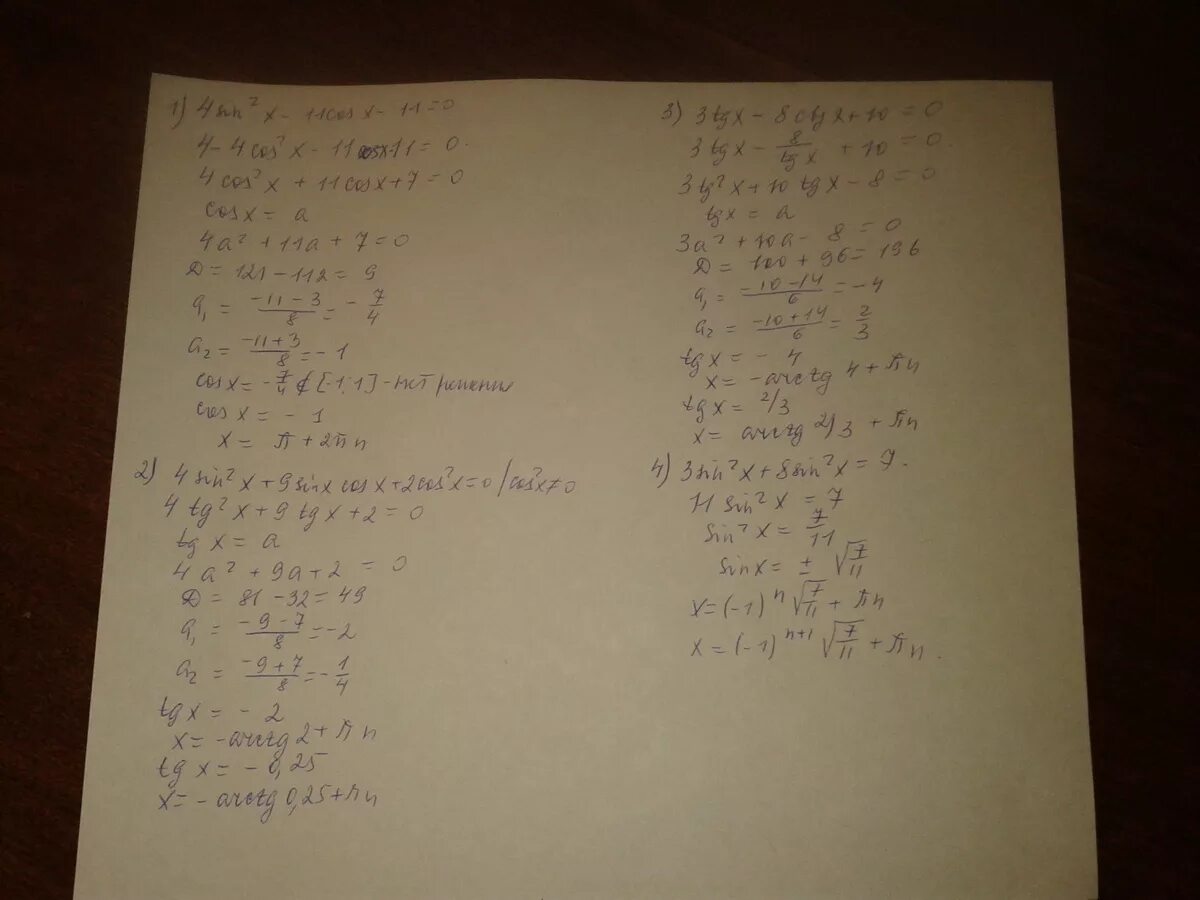 1) 4 sin² x - 11 cos x - 11 = 0
4 - 4 cos² x - 11 cos x - 11 = 0.
4 cos² x + 11 cos x + 7 = 0
cos x = a
4a² + 11a + 7 = 0
D = 121 - 112 = 9
a₁ = (-11 - 3)/8 = -7/4
a₂ = (-11 + 3)/8 = -1
cos x = -7/4 ∉ [-1; 1] - нет решения
cos x = -1
x = π + 2πn
2) 4 sin² x + 9 sin x cos x + 2 cos² x = 0 / cos² x ≠ 0
4 tg² x + 9 tg x + 2 = 0
tg x = a
4a² + 9a + 2 = 0
D = 81 - 32 = 49
a₁ = (-9 - 7)/8 = -2
a₂ = (-9 + 7)/8 = -1/4
tg x = -2
x = -arctg 2 + πn
tg x = -0,25
x = -arctg 0,25 + πn
3) 3 tg x - 8 ctg x + 10 = 0
3 tg x - 8/tg x + 10 = 0.
3 tg² x + 10 tg x - 8 = 0
tg x = a
3a² + 10a - 8 = 0
D = 100 + 96 = 196
a₁ = (-10 - 14)/6 = -4
a₂ = (-10 + 14)/6 = 2/3
tg x = -4
x = -arctg 4 + πn
tg x = 2/3
x = arctg 2/3 + πn
4) 3 sin² x + 8 sin² x = 7.
11 sin² x = 7
sin² x = 7/11
sin x = ± √(7/11)
x = (-1)ⁿ √(7/11) + πn
x = (-1)ⁿ⁺¹ √(7/11) + πn.